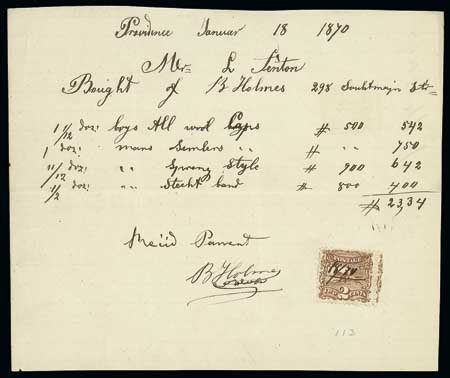 Providence Januar 18 1870
Mr L Fenton
Bought of B Holmes 298 Southmain Str
1 1/12 doz: boys All wool Caps # 500 542
1 doz: mans " # " 750
11/12 doz: " Spreng Style # 700 642
1/2 doz: " Stecht band # 800 400
# 23,34
B Holmes
POSTAGE
18/70
2 CENTS
113